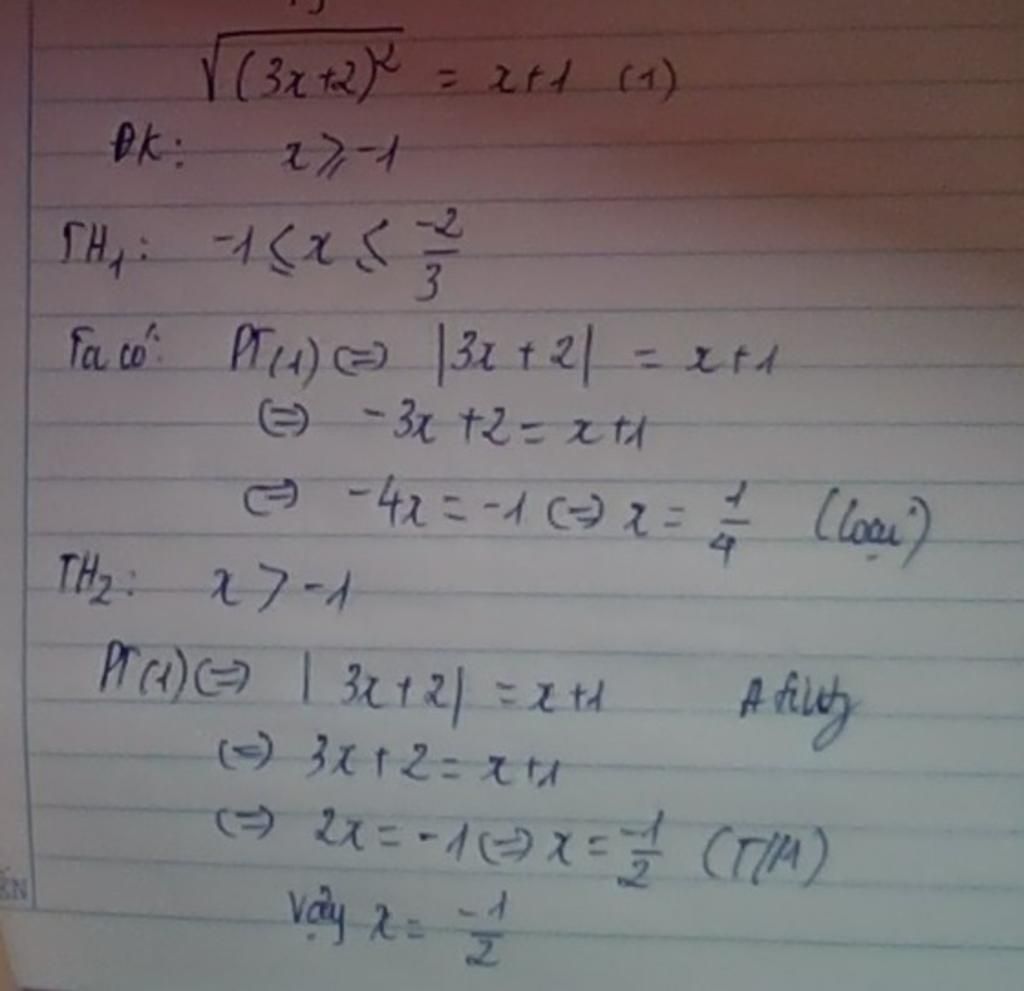 √(3x+2)² = x+1 (1)
ĐK: x ≥ -1
TH₁: -1 ≤ x ≤ -2/3
Ta có: PT(1) ⇔ |3x + 2| = x+1
⇔ -3x +2 = x+1
⇔ -4x = -1 ⇔ x = 1/4 (loại)
TH₂: x > -1
PT(1) ⇔ | 3x+2| = x+1
⇔ 3x+2 = x+1
⇔ 2x = -1 ⇔ x = -1/2 (T/M)
Vậy x = -1/2